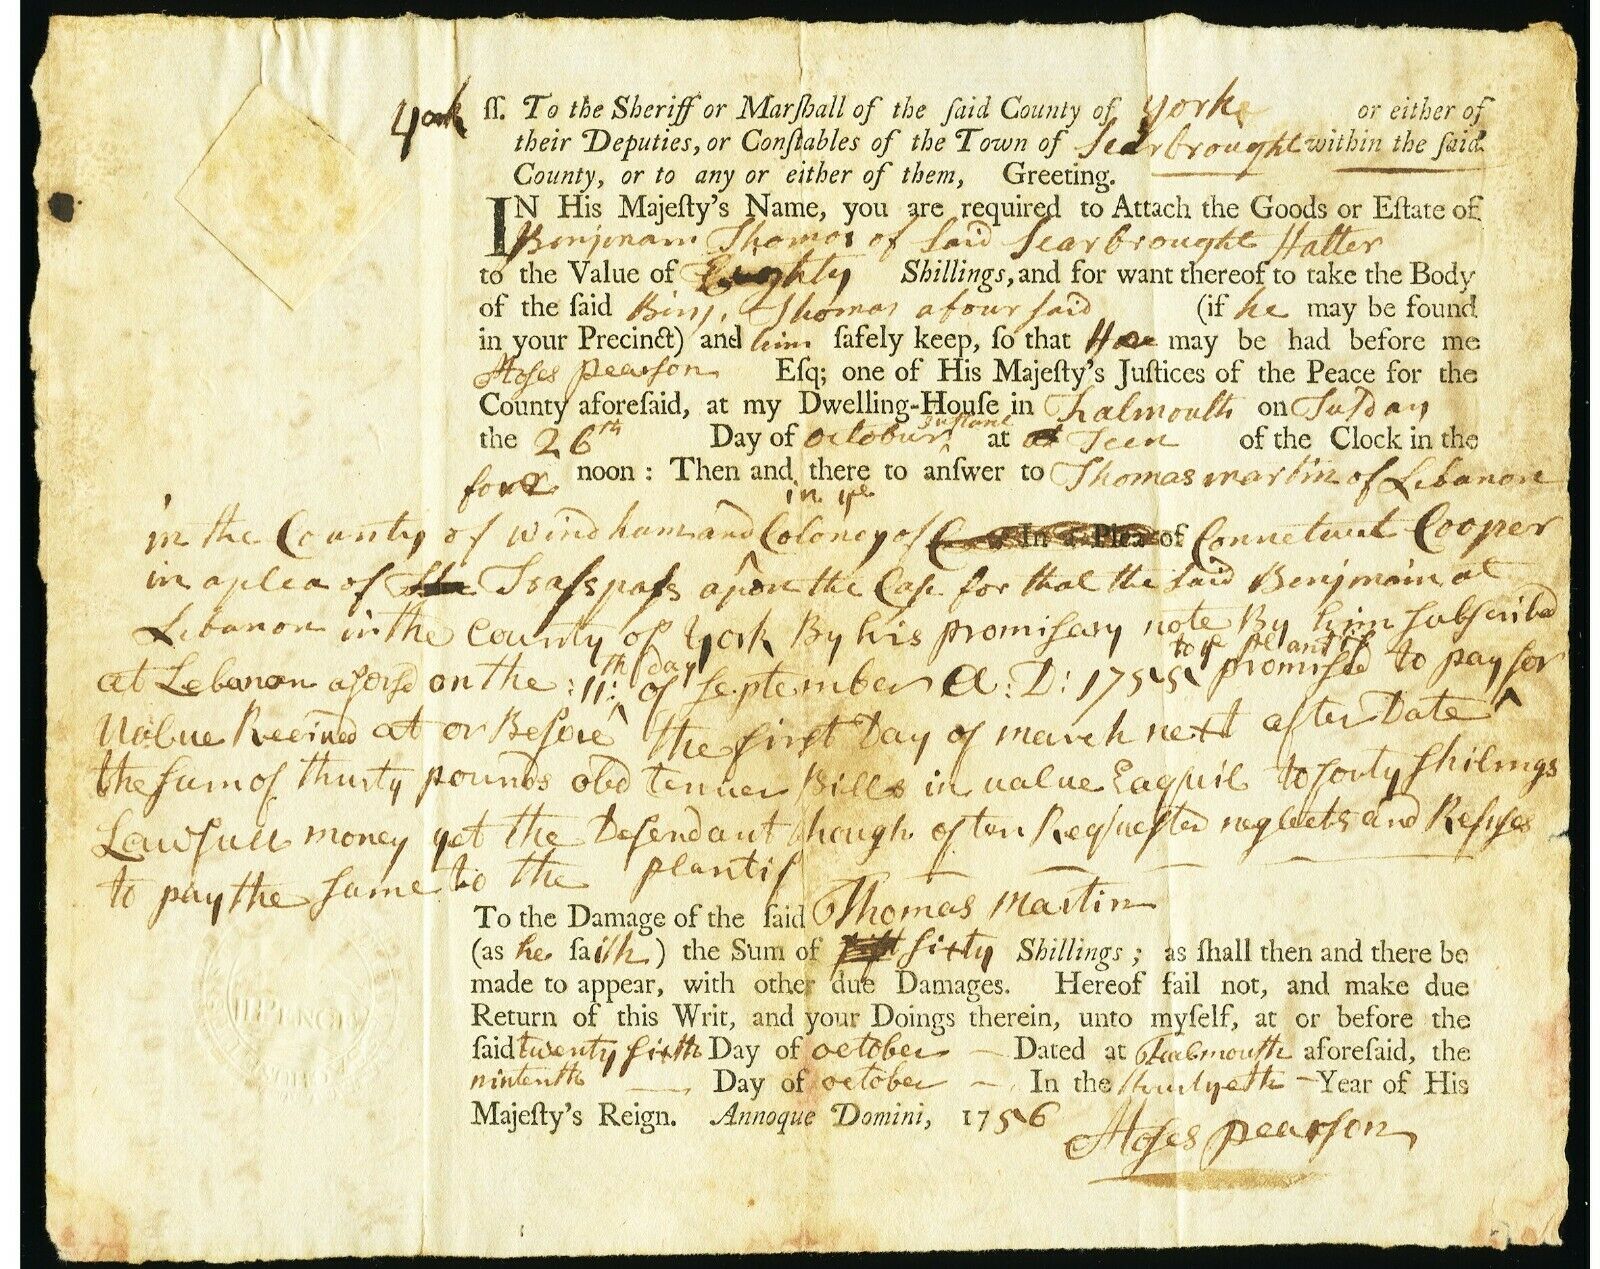 York ſſ. To the Sheriff or Marſhall of the ſaid County of Yorke or either of
their Deputies, or Conſtables of the Town of Scarbrought within the ſaid
County, or to any or either of them, Greeting.
IN His Majeſty's Name, you are required to Attach the Goods or Eſtate of
Benjenam Thomas of Said Scarbrought Hatter
to the Value of Eighty Shillings, and for want thereof to take the Body
of the ſaid Binj. Thomas afour said (if he may be found
in your Precinct) and him ſafely keep, ſo that He may be had before me
Moſes pearſon Eſq; one of His Majeſty's Juſtices of the Peace for the
County aforeſaid, at my Dwelling-Houſe in Falmouth on Tuſday
the 26th Day of October Instant at Teen of the Clock in the
four noon: Then and there to anſwer to Thomas martin of Lebanon
in the County of windham and in ye Coloney of In a Plea of Connetuut Cooper
in a plea of Traſspaſs apon the Caſe for that the said Benjmain at
Lebanon in the County of York By his promisary note By him subscribed
at Lebanon aforsd on the :11:th day of September A:D: 1755 to ye plantif promised to pay for
Value Received at or Before the first Day of march next after Date
the sum of thurty pounds old tenner Bills in value Eaquil to forty Shilings
Lawfull money yet the Defendant though often Requested neglects and Refuses
to pay the same to the plantif
To the Damage of the ſaid Thomas Martin
(as he ſaith) the Sum of sixty Shillings; as ſhall then and there be
made to appear, with other due Damages. Hereof fail not, and make due
Return of this Writ, and your Doings therein, unto myſelf, at or before the
ſaid twenty sixth Day of october Dated at Falmouth aforeſaid, the
nintenth Day of october In the Year of His
Majeſty's Reign. Annoque Domini, 1756
Moſes pearſon